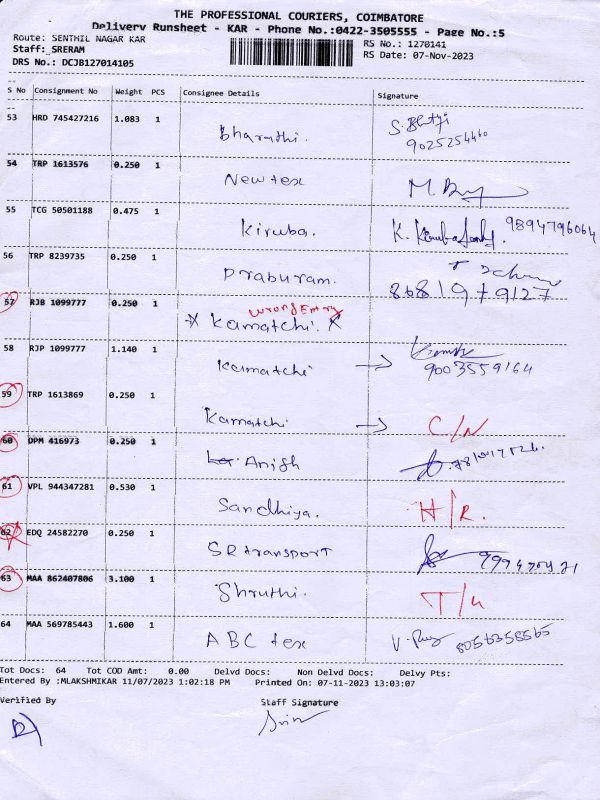 THE PROFESSIONAL COURIERS, COIMBATORE
Delivery Runsheet - KAR - Phone No.:0422-3505555 - Page No.:5
Route: SENTHIL NAGAR KAR
RS No.: 1270141
Staff: SRERAM
RS Date: 07-Nov-2023
DRS No.: DCJB127014105
S No Consignment No Weight PCS Consignee Details Signature
53 HRD 745427216 1.083 1 Bharathi.
9025254460
54 TRP 1613576 0.250 1 Newtex
55 TCG 50501188 0.475 1 Kiruba. K. 9894796064
56 TRP 8239735 0.250 1 Praburam.
8681979127
wrong Entry
57 RJB 1099777 0.250 1 * Kamatchi. *
58 RJP 1099777 1.140 1 Kamatchi →
9003559164
59 TRP 1613869 0.250 1 Kamatchi → C/N
60 DPM 416973 0.250 1 Anish
61 VPL 944347281 0.530 1 Sandhiya. H/R.
62 EDQ 24582270 0.250 1 SR transport
63 MAA 862407806 3.100 1 Shruthi. T/U
64 MAA 569785443 1.600 1 ABC tex
Tot Docs: 64 Tot COD Amt: 0.00 Delvd Docs: Non Delvd Docs: Delvy Pts:
Entered By :MLAKSHMIKAR 11/07/2023 1:02:18 PM Printed On: 07-11-2023 13:03:07
Verified By Staff Signature